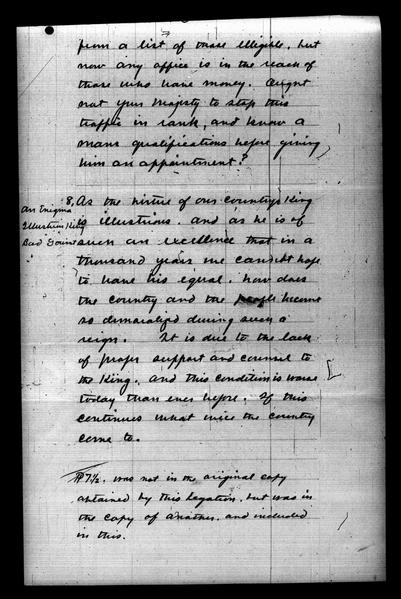 from a list of those illegible, but
now any office is in the reach of
those who have money. Ought
not your Majesty to stop this
traffic in rank, and know a
mans qualifications before giving
him an appointment?
An Enigma
Illustrious King
Bad Govmt
8. As the virtue of our countrys King
is illustrious, and as he is of
such an excellence that in a
thousand years we can not hope
to have his equal, how does
the country and the people become
so demoralized during such a
reign. It is due to the lack
of proper support and counsel to
the King, and this condition is worse
today than ever before. If this
continues what will the country
come to.
₱ 7½. was not in the original copy
obtained by this legation, but was in
the copy of another, and included
in this.